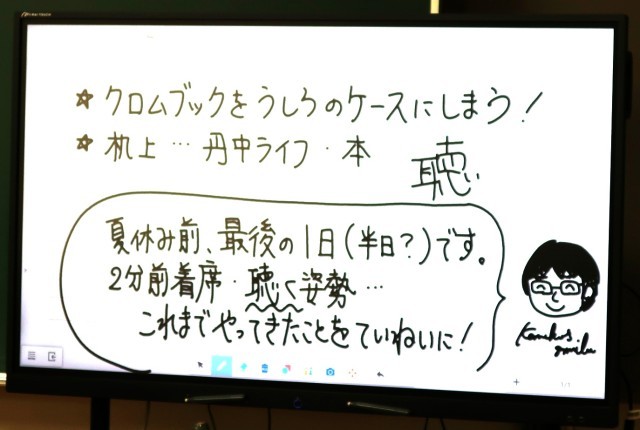 ☆ クロムブックをうしろのケースにしまう！
☆ 机上…丹中ライフ・本
聴
夏休み前、最後の1日(半日？)です。
2分前着席・聴く姿勢…
これまでやってきたことをていねいに！
1/1